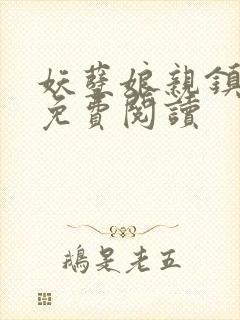 妖孽娘親鎮
免費閱讀
鵝是老五